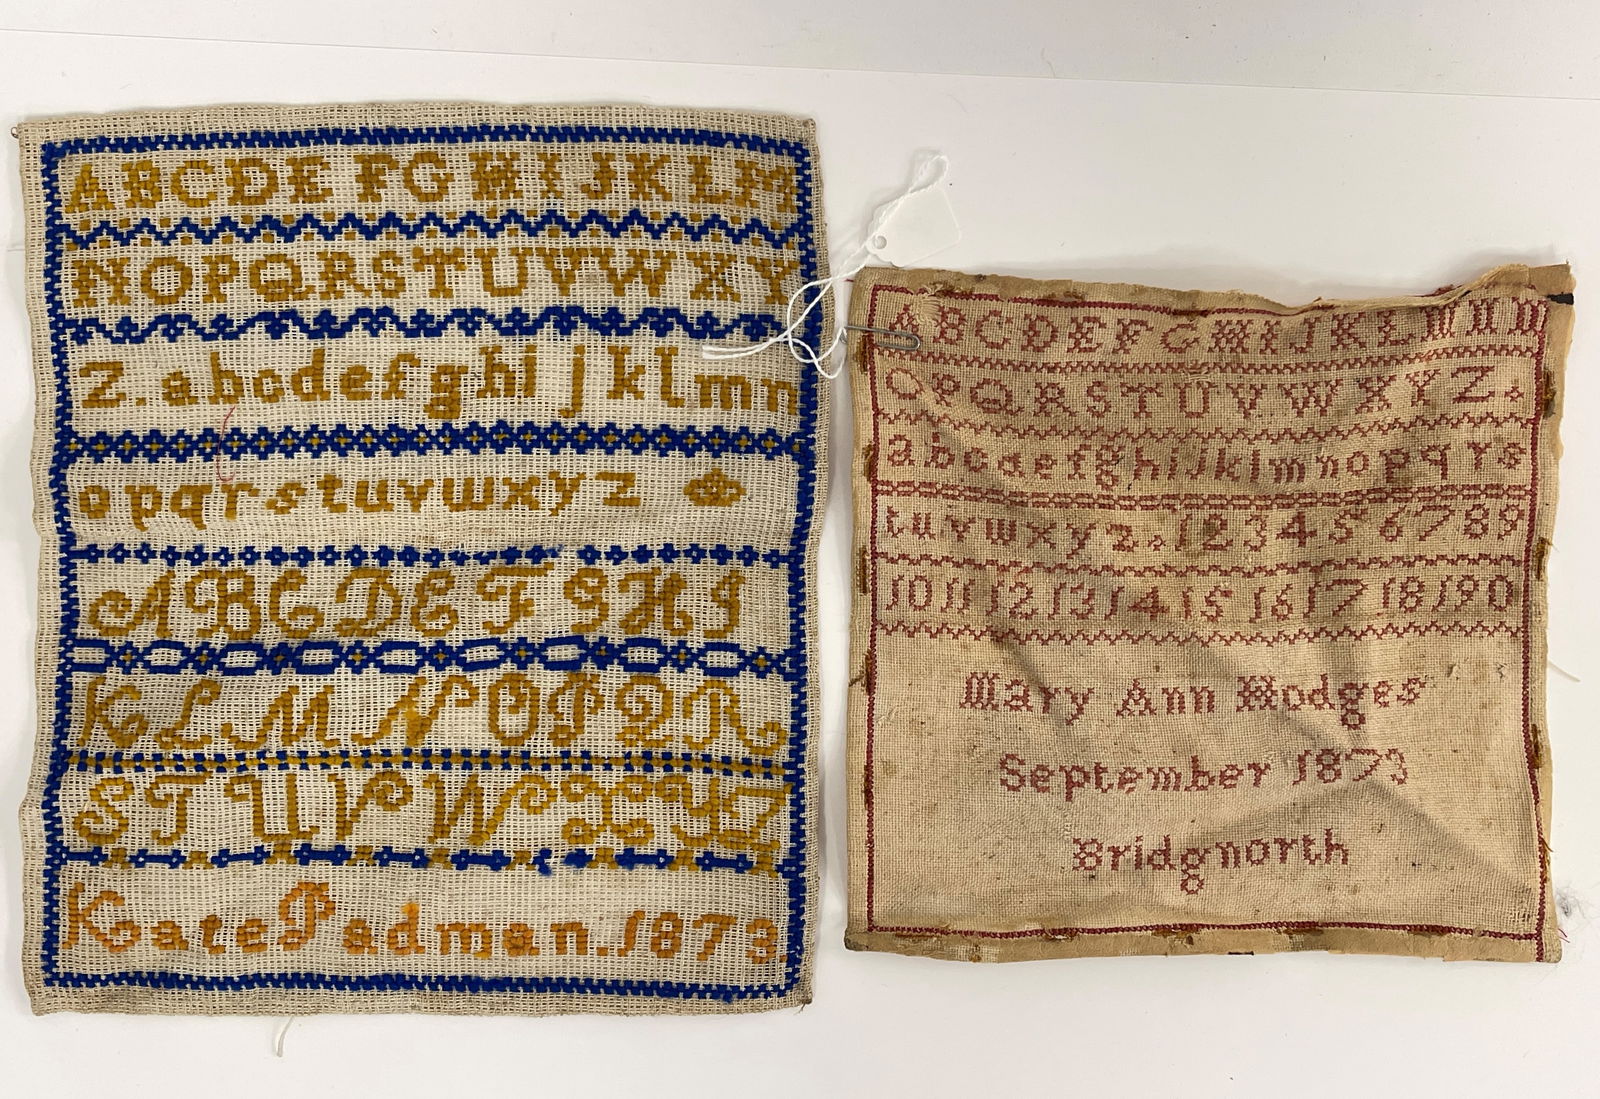 A B C D E F G H I J K L M
N O P Q R S T U V W X Y
Z . a b c d e f g h i j k l m n
o p q r s t u v w x y z
A B C D E F G H I
K L M N O P Q R
S T U V W X Y Z
Kate Padman . 1873 .
A B C D E F G H I J K L M N
O P Q R S T U V W X Y Z .
a b c d e f g h i j k l m n o p q r s
t u v w x y z . 1 2 3 4 5 6 7 8 9
10 11 12 13 14 15 16 17 18 19 0
Mary Ann Hodges
September 1873
Bridgnorth